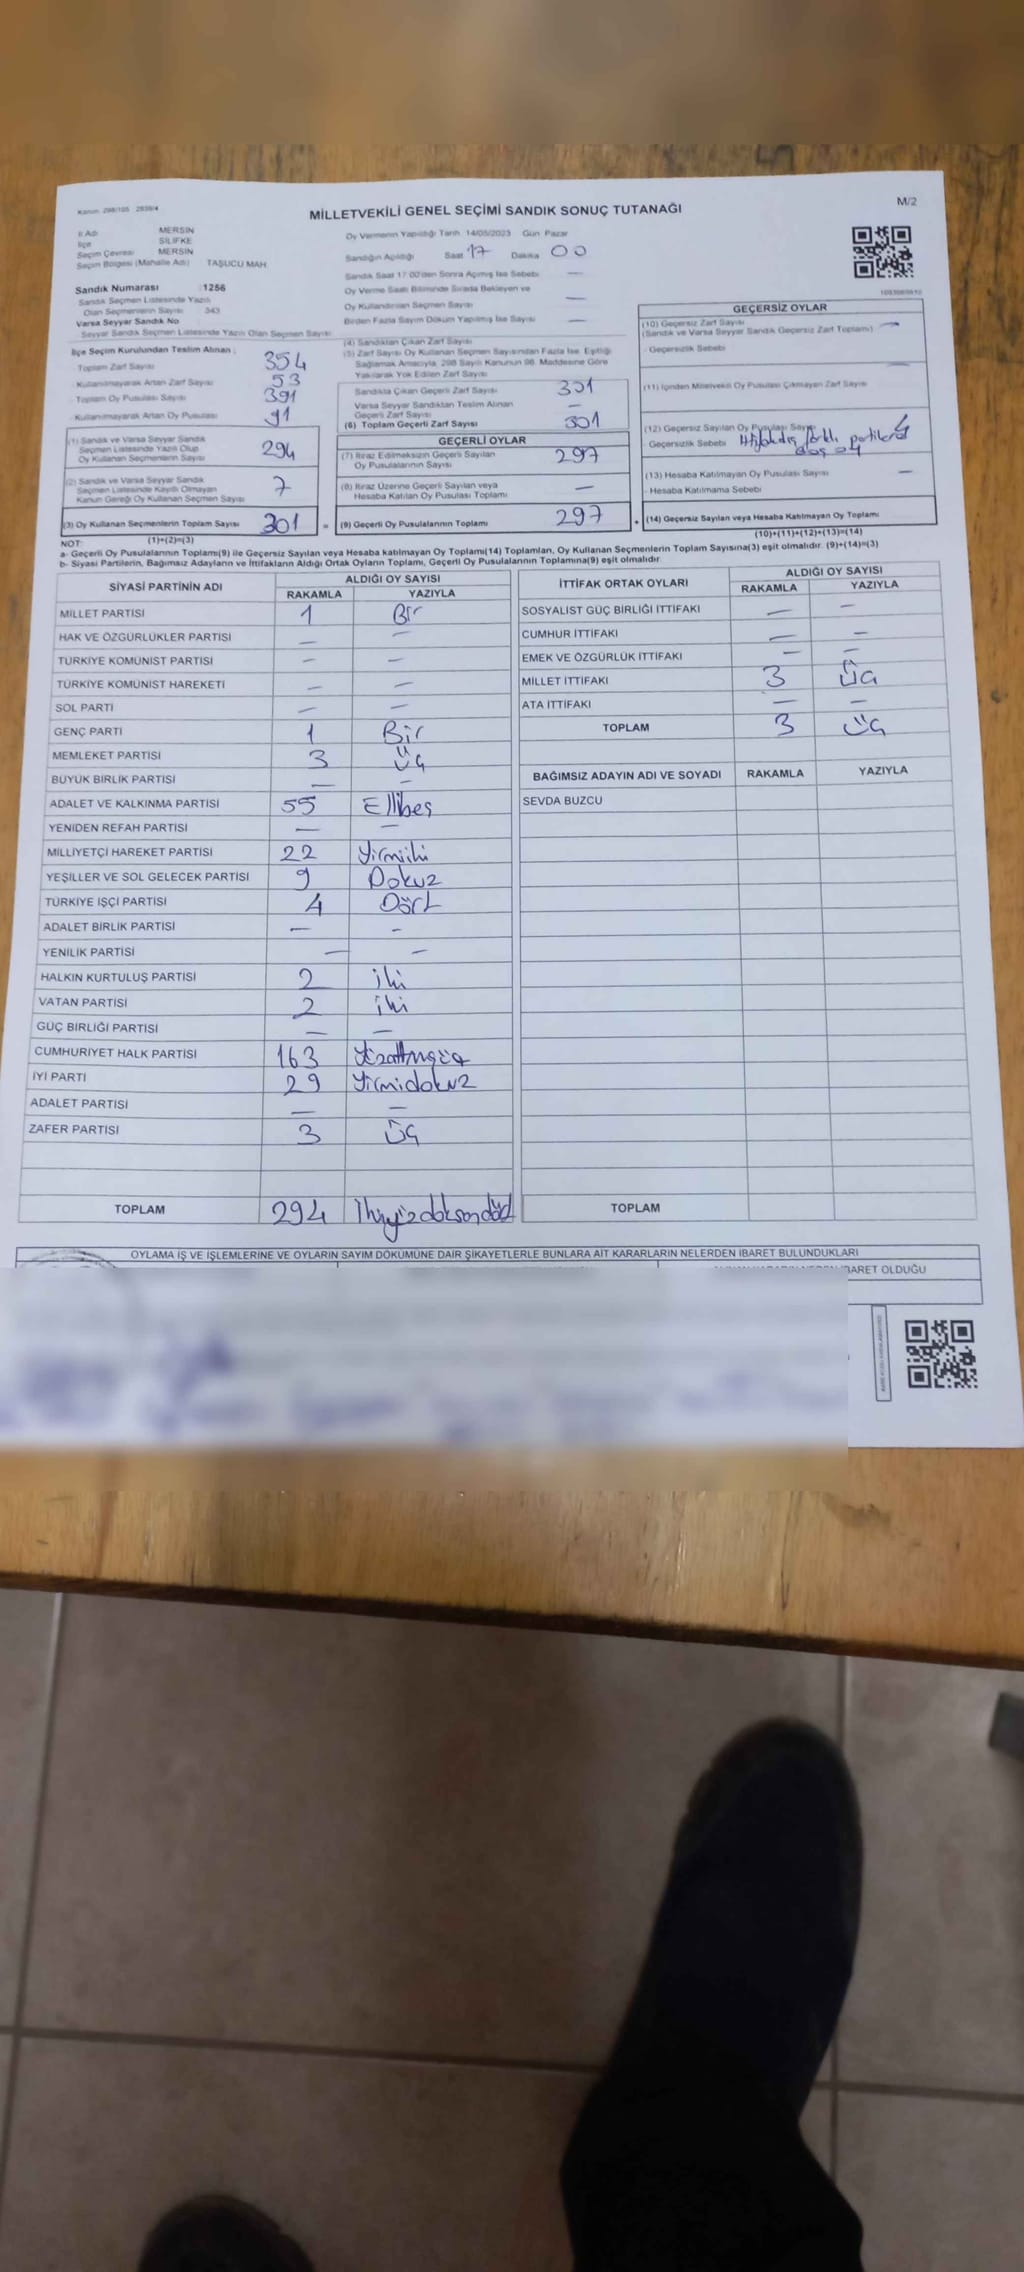 Kanun: 298/105 2839/4
MİLLETVEKİLİ GENEL SEÇİMİ SANDIK SONUÇ TUTANAĞI
M/2
İl Adı MERSİN
İlçe SİLİFKE
Seçim Çevresi MERSİN
Seçim Bölgesi (Mahalle Adı) TAŞUCU MAH.
Oy Vermenin Yapıldığı Tarih 14/05/2023 Gün Pazar
Sandığın Açıldığı Saat 17 Dakika 00
Sandık Saat 17:00'den Sonra Açılmış İse Sebebi —
Oy Verme Saati Bitiminde Sırada Bekleyen ve
Oy Kullandırılan Seçmen Sayısı —
Birden Fazla Sayım Döküm Yapılmış İse Sayısı —
Sandık Numarası : 1256
Sandık Seçmen Listesinde Yazılı
Olan Seçmenlerin Sayısı : 343
Varsa Seyyar Sandık No
Seyyar Sandık Seçmen Listesinde Yazılı Olan Seçmen Sayısı
İlçe Seçim Kurulundan Teslim Alınan ;
Toplam Zarf Sayısı 354
- Kullanılmayarak Artan Zarf Sayısı 53
- Toplam Oy Pusulası Sayısı 391
- Kullanılmayarak Artan Oy Pusulası 91
(1) Sandık ve Varsa Seyyar Sandık
Seçmen Listesinde Yazılı Olup
Oy Kullanan Seçmenlerin Sayısı 294
(2) Sandık ve Varsa Seyyar Sandık
Seçmen Listesinde Kayıtlı Olmayan
Kanun Gereği Oy Kullanan Seçmen Sayısı 7
(3) Oy Kullanan Seçmenlerin Toplam Sayısı 301 =
(1)+(2)=(3)
(4) Sandıktan Çıkan Zarf Sayısı
(5) Zarf Sayısı Oy Kullanan Seçmen Sayısından Fazla İse, Eşitliği
Sağlamak Amacıyla, 298 Sayılı Kanunun 98. Maddesine Göre
Yakılarak Yok Edilen Zarf Sayısı
Sandıkta Çıkan Geçerli Zarf Sayısı 301
Varsa Seyyar Sandıktan Teslim Alınan
Geçerli Zarf Sayısı —
(6) Toplam Geçerli Zarf Sayısı 301
GEÇERLİ OYLAR
(7) İtiraz Edilmeksizin Geçerli Sayılan
Oy Pusulalarının Sayısı 297
(8) İtiraz Üzerine Geçerli Sayılan veya
Hesaba Katılan Oy Pusulası Toplamı —
(9) Geçerli Oy Pusulalarının Toplamı 297 +
GEÇERSİZ OYLAR
(10) Geçersiz Zarf Sayısı —
(Sandık ve Varsa Seyyar Sandık Geçersiz Zarf Toplamı)
- Geçersizlik Sebebi
(11) İçinden Milletvekili Oy Pusulası Çıkmayan Zarf Sayısı
(12) Geçersiz Sayılan Oy Pusulası Sayısı 4
- Geçersizlik Sebebi farklı partilere
(13) Hesaba Katılmayan Oy Pusulası Sayısı —
- Hesaba Katılmama Sebebi
(14) Geçersiz Sayılan veya Hesaba Katılmayan Oy Toplamı
(10)+(11)+(12)+(13)=(14)
NOT:
a- Geçerli Oy Pusulalarının Toplamı(9) ile Geçersiz Sayılan veya Hesaba katılmayan Oy Toplamı(14) Toplamları, Oy Kullanan Seçmenlerin Toplam Sayısına(3) eşit olmalıdır. (9)+(14)=(3)
b- Siyasi Partilerin, Bağımsız Adayların ve İttifakların Aldığı Ortak Oyların Toplamı, Geçerli Oy Pusulalarının Toplamına(9) eşit olmalıdır.
SİYASİ PARTİNİN ADI ALDIĞI OY SAYISI
RAKAMLA YAZIYLA
MİLLET PARTİSİ 1 Bir
HAK VE ÖZGÜRLÜKLER PARTİSİ — —
TÜRKİYE KOMÜNİST PARTİSİ — —
TÜRKİYE KOMÜNİST HAREKETİ — —
SOL PARTİ — —
GENÇ PARTİ 1 Bir
MEMLEKET PARTİSİ 3 Üç
BÜYÜK BİRLİK PARTİSİ — —
ADALET VE KALKINMA PARTİSİ 55 Ellibeş
YENİDEN REFAH PARTİSİ — —
MİLLİYETÇİ HAREKET PARTİSİ 22 Yirmiiki
YEŞİLLER VE SOL GELECEK PARTİSİ 9 Dokuz
TÜRKİYE İŞÇİ PARTİSİ 4 Dört
ADALET BİRLİK PARTİSİ — —
YENİLİK PARTİSİ — —
HALKIN KURTULUŞ PARTİSİ 2 iki
VATAN PARTİSİ 2 iki
GÜÇ BİRLİĞİ PARTİSİ — —
CUMHURİYET HALK PARTİSİ 163 Yüzaltmışüç
İYİ PARTİ 29 Yirmidokuz
ADALET PARTİSİ — —
ZAFER PARTİSİ 3 Üç
TOPLAM 294 İkiyüzdoksandört
İTTİFAK ORTAK OYLARI ALDIĞI OY SAYISI
RAKAMLA YAZIYLA
SOSYALİST GÜÇ BİRLİĞİ İTTİFAKI — —
CUMHUR İTTİFAKI — —
EMEK VE ÖZGÜRLÜK İTTİFAKI — —
MİLLET İTTİFAKI 3 Üç
ATA İTTİFAKI — —
TOPLAM 3 Üç
BAĞIMSIZ ADAYIN ADI VE SOYADI RAKAMLA YAZIYLA
SEVDA BUZCU
TOPLAM
OYLAMA İŞ VE İŞLEMLERİNE VE OYLARIN SAYIM DÖKÜMÜNE DAİR ŞİKAYETLERLE BUNLARA AİT KARARLARIN NELERDEN İBARET BULUNDUKLARI
İBARET OLDUĞU